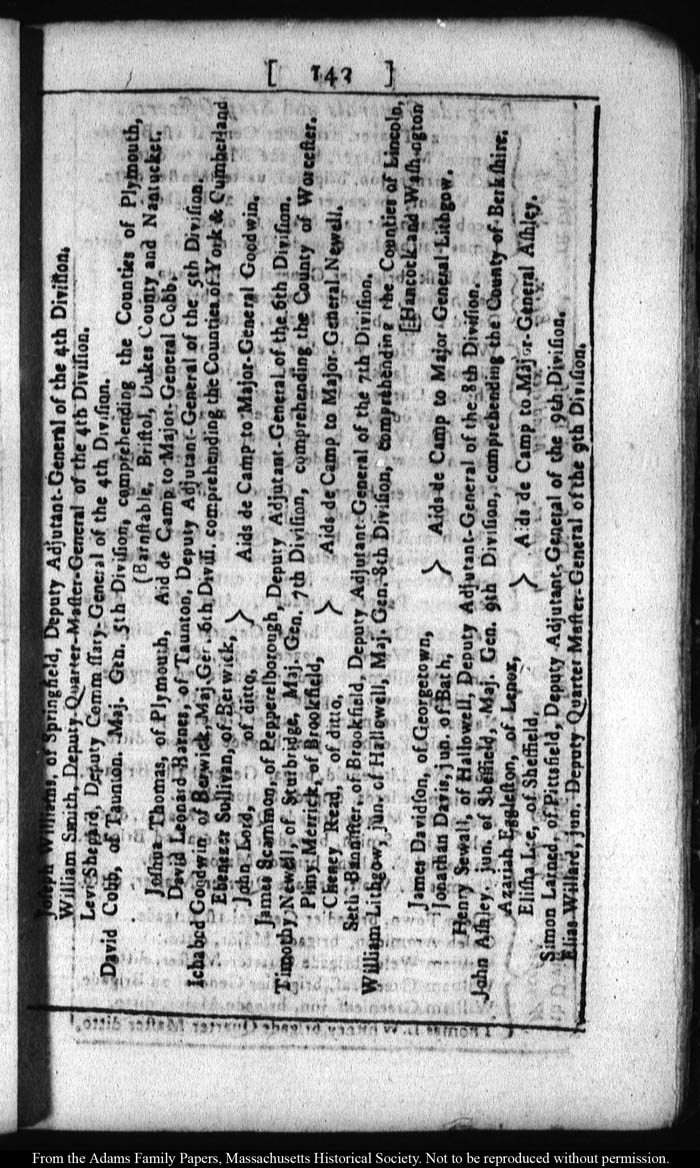 [ 143 ]
Joseph Williams, of Springfield, Deputy Adjutant-General of the 4th Diviſion.
William Smith, Deputy Quarter-Maſter-General of the 4th Diviſion.
Levi Shepard, Deputy Commiſſary General of the 4th Diviſion.
David Cobb, of Taunton. Maj. Gen. 5th Diviſion, comprehending the Counties of Plymouth,
(Barnſtable, Briſtol, Dukes County and Nantucket.
Joſhua Thomas, of Plymouth, Aid de Camp to Major-General Cobb.
David Leonard Barnes, of Taunton, Deputy Adjutant-General of the 5th Diviſion.
Ichabod Goodwin, of Berwick, Maj. Gen. 6th Diviſi. comprehending the Counties of York & Cumberland
Ebenezer Sullivan, of Berwick,
John Lord, of ditto, } Aids de Camp to Major-General Goodwin.
James Scammon, of Pepperelborough, Deputy Adjutant-General of the 6th Diviſion.
Timothy Newell, of Sturbridge, Maj. Gen. 7th Diviſion, comprehending the County of Worceſter.
Pliny Merrick, of Brookfield,
Cheney Read, of ditto, } Aids de Camp to Major-General Newell.
Seth Banniſter, of Brookfield, Deputy Adjutant-General of the 7th Diviſion.
William Lithgow, jun. of Hallowell, Maj. Gen. 8th Diviſion, comprehending the Counties of Lincoln,
[Hancock and Waſhington
James Davidſon, of Georgetown,
Jonathan Davis, jun. of Bath, } Aids de Camp to Major General Lithgow.
Henry Sewall, of Hallowell, Deputy Adjutant-General of the 8th Diviſion.
John Aſhley, jun. of Sheffield, Maj. Gen. 9th Diviſion, comprehending the County of Berkſhire.
Azariah Eggleſton, of Lenox,
Eliſha Lee, of Sheffield, } Aids de Camp to Major-General Aſhley.
Simon Larned, of Pittsfield, Deputy Adjutant-General of the 9th Diviſion.
Elias Willard, jun. Deputy Quarter Maſter-General of the 9th Diviſion.
From the Adams Family Papers, Massachusetts Historical Society. Not to be reproduced without permission.